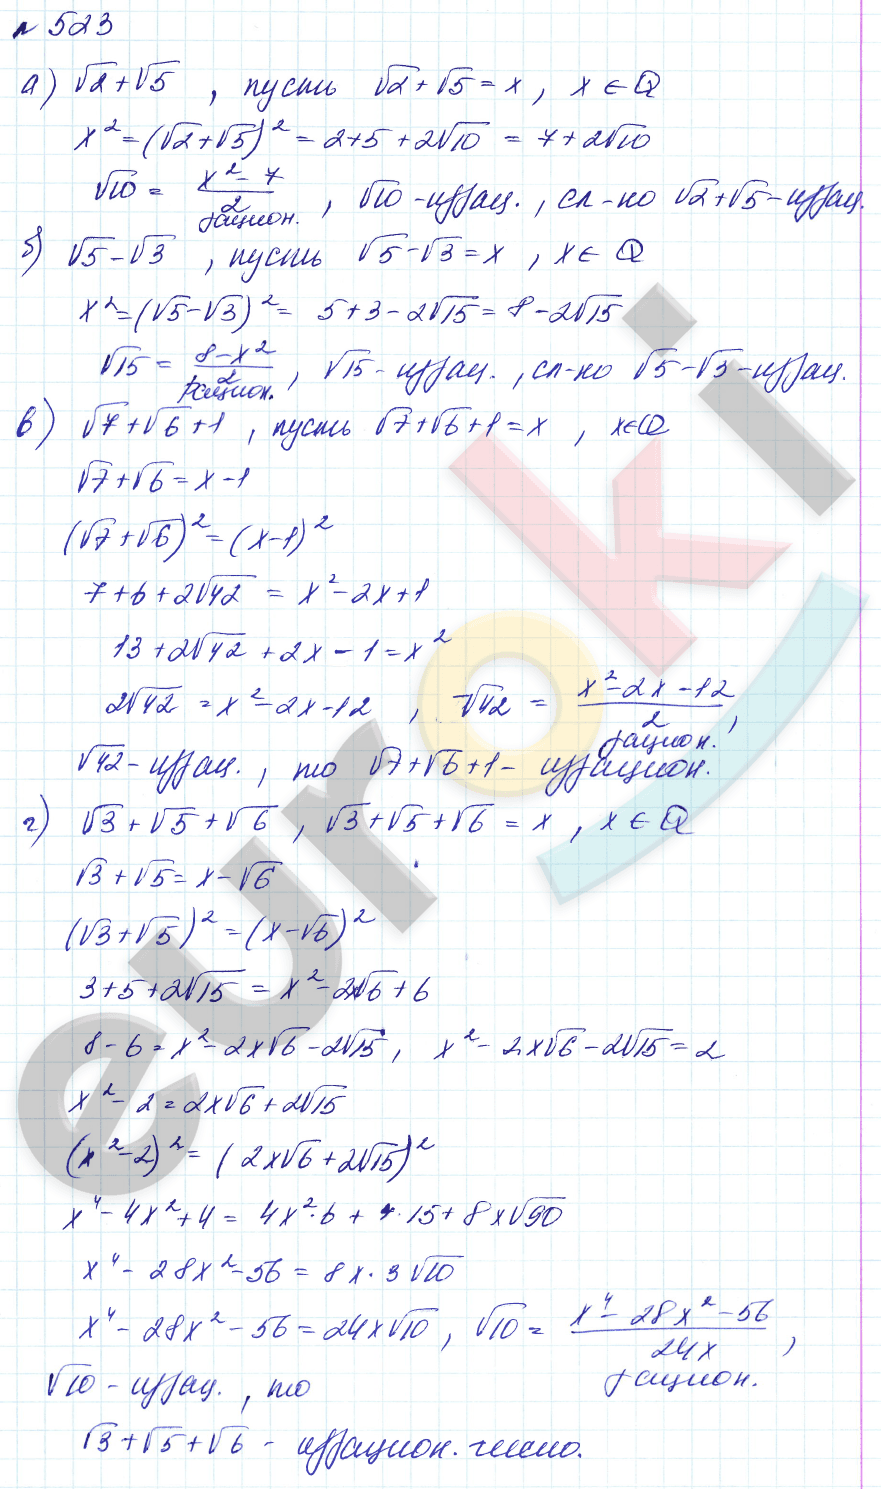 № 523
а) √2+√5 , пусть √2+√5=x, x∈Q
x²=(√2+√5)²=2+5+2√10=7+2√10
√10=(x²-7)/2 рацион., √10-иррац., сл-но √2+√5-иррац.
б) √5-√3 , пусть √5-√3=x, x∈Q
x²=(√5-√3)²= 5+3-2√15=8-2√15
√15=(8-x²)/2 рацион., √15-иррац., сл-но √5-√3-иррац.
в) √7+√6+1 , пусть √7+√6+1=x , x∈Q
√7+√6=x-1
(√7+√6)²=(x-1)²
7+6+2√42=x²-2x+1
13+2√42+2x-1=x²
2√42=x²-2x-12 , √42=(x²-2x-12)/2 рацион.,
√42-иррац., то √7+√6+1- иррацион.
г) √3+√5+√6 , √3+√5+√6=x , x∈Q
√3+√5=x-√6
(√3+√5)²=(x-√6)²
3+5+2√15=x²-2x√6+6
8-6=x²-2x√6-2√15, x²-2x√6-2√15=2
x²-2=2x√6+2√15
(x²-2)²=(2x√6+2√15)²
x⁴-4x²+4=4x²·6+4·15+8x√90
x⁴-28x²-56=8x·3√10
x⁴-28x²-56=24x√10, √10=(x⁴-28x²-56)/24x рацион.,
√10-иррац., то
√3+√5+√6 - иррацион. число.
euroki